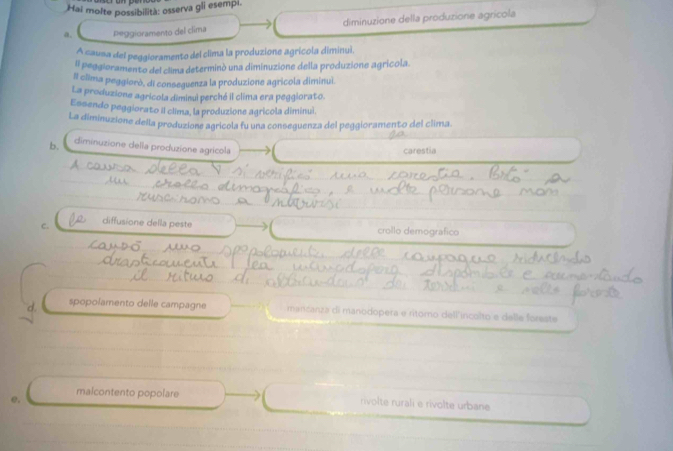 Hai molte possibilità: osserva gli esempi.
a. peggioramento del clima
diminuzione della produzione agricola
A causa del peggioramento del clima la produzione agricola diminuì.
Il peggioramento del clima determinò una diminuzione della produzione agricola.
Il clima peggiorò, di conseguenza la produzione agricola diminuì.
La produzione agricola diminuì perché il clima era peggiorato.
Essendo peggiorato il clima, la produzione agricola diminuì.
La diminuzione della produzione agricola fu una conseguenza del peggioramento del clima.
b. diminuzione della produzione agricola
carestia
A causa della si verificò una carestia. Portò a
un crollo demografico, e molte persone non
riuscirono a nutrirsi
c. La diffusione della peste
crollo demografico
causò uno spopolamento delle campagne riducendo
drasticamente la manodopera disponibile e aumentando
il ritiro di
d. spopolamento delle campagne
mancanza di manodopera e ritorno dell'incolto e delle foreste
e. malcontento popolare
rivolte rurali e rivolte urbane